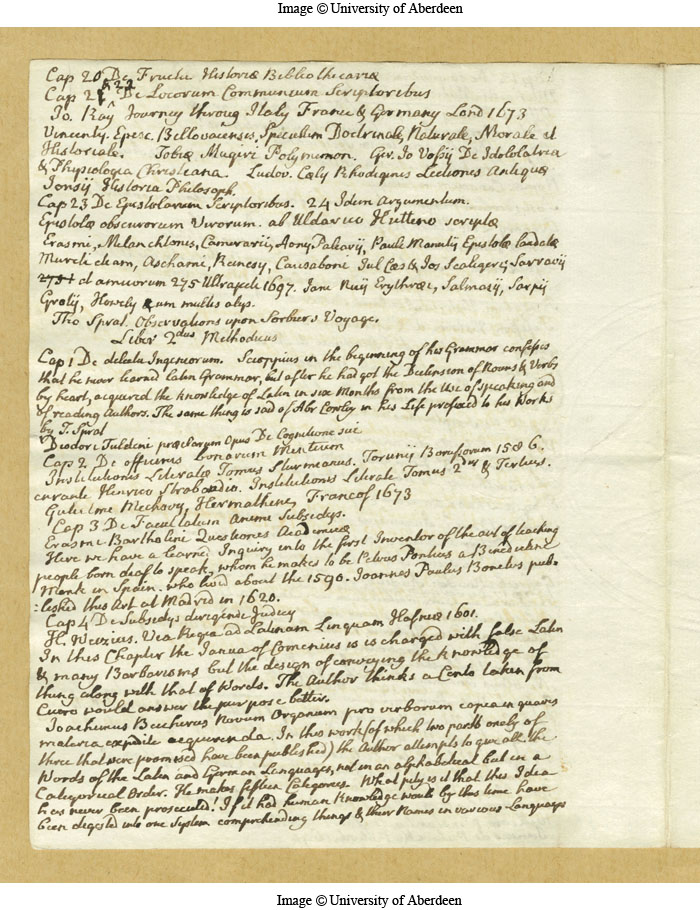 Image © University of Aberdeen
Cap 20 De Fructu Historiæ Bibliothecariæ
Cap 21 & 22 De Locorum Communium Scriptoribus
Jo. Ray Journey throug Italy France & Germany Lond 1673
Vincentij. Episc. Bellovacensis, Speculum Doctrinale, Naturale, Morale et
Historiale. Tobiæ Magiri Polymnemon. Ger. Jo Vossij De Idololatria
& Physiologia Christiana. Ludov. Cæly Rhodigini Lectiones Antiquæ
Jonsij Historia Philosoph.
Cap 23 De Epistolarum Scriptoribus. 24 Idem Argumentum.
Epistolæ obscurorum Virorum. ab Uldarico Hutteno scriptæ
Erasmi, Melanchtonis, Camerarij, Aonij Palearij, Pauli Manutij Epistolæ laudatæ
Murelli etiam, Aschami, Reinesij, Causaboni Jul Cæs & Jos Scaligeri, Sarravij
et amicorum 275 Ultrajecti 1697. Jani Nicij Erythræi, Salmasij, Sarpij
Grotij, Howely cum multis alijs.
Tho Sprat. Observations upon Sorbiers Voyage.
Liber 2dus Methodicus
Cap 1 De delectu Ingeniorum. Scioppius in the beginning of his Grammar confesses
that he never learned Latin Grammar, but after he had got the Declension of Nouns & Verbs
by heart, acquired the knowledge of Latin in six Months from the Use of speaking and
of reading Authors. The same thing is said of Abr Cowley in his Life prefixed to his Works
by T. Sprat
Diodori Tuldeni præclarum Opus De Cognitione sui
Cap 2 De officinis bonarum Mentium
Institutionis Literatæ Tomus Sturmianus. Torunij Borussorum 1586.
curante Henrico Strobandio. Institutionis Literatæ Tomus 2dus & Tertius.
Gulielmi Mechovij, Hermathene, Francof 1673
Cap 3 De Facultatum Animæ Subsidijs.
Erasmi Bartholini Quæstiones Academicæ
Here we have a learned Inquiry into the first Inventor of the art of teaching
people born deaf to speak, whom he makes to be Petrus Pontius a Benedictine
Monk in Spain. who lived about the 1590. Joannes Paulus Bonetus pub=
:lished this Art at Madrid in 1620.
Cap 4 De Subsidijs dirigendi Judicij
H. Wuzius. Via Regia ad Latinam Linguam Hafniæ 1601.
In this Chapter the Janua of Comenius is is charged with false Latin
& many Barbarisms but the design of conveying the knowledge of
thing along with that of Words. The Author thinks a Cento taken from
Cicero would answer the purpose better.
Joachimus Becherus Novum Organum pro verborum copia in quavis
materia expedite acquirenda. In this work (of which two parts onely of
three that were promised have been published) the Author attempts to give all the
Words of the Latin and German Languages, not in an alphabetical but in a
Categorical Order. He makes fifteen Categories. What pity is it that this Idea
has never been prosecuted! If it had human knowledge would by this time have
been digested into one System comprehending things & their Names in various Languages
Image © University of Aberdeen